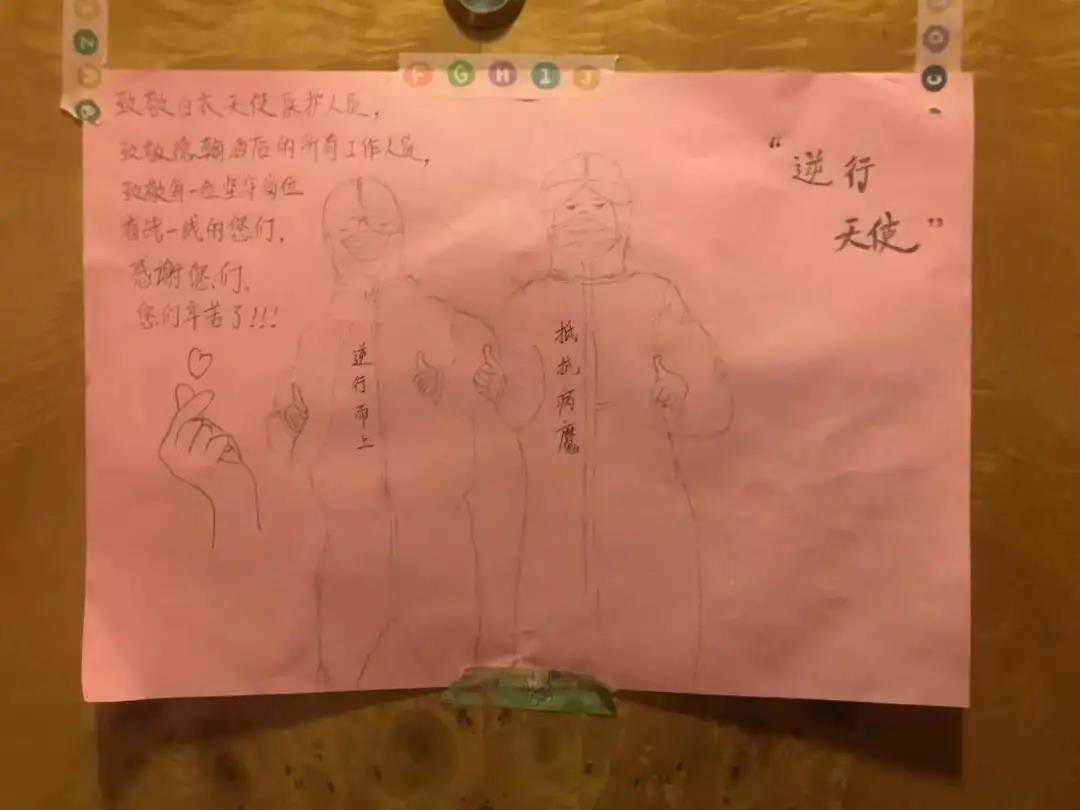 致敬白衣天使医护人员,
致敬德翰酒店的所有工作人员,
致敬每一位坚守岗位
奋战一线的您们,
感谢您们,
您们辛苦了!!!
“逆行
天使”
逆行而上
抵抗病魔
F G H I J